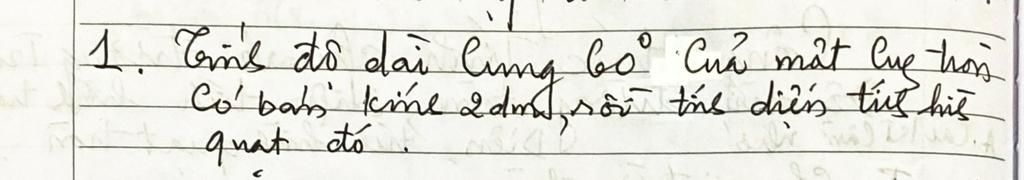 1. Tính độ dài Cung 60° Của một Cung tròn
Có bán kính 2dm, rồi tính diện tích hình
quạt đó.